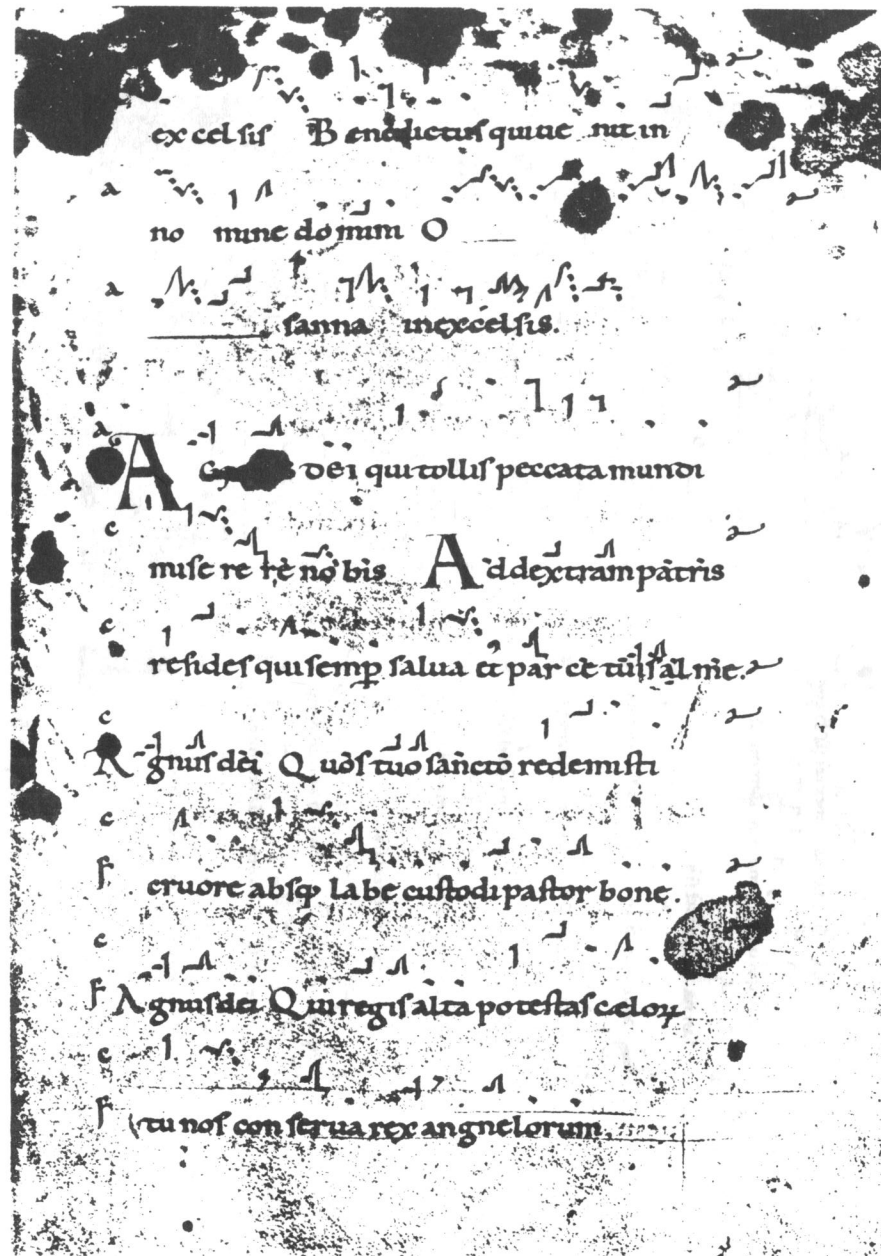 excelsis Benedictus qui ue nit in
a no mine domini O
a sanna inexcelsis.
a Agnus dei qui tollis peccata mundi
c mise re re nobis Ad dextram patris
c resides qui semp̱ salua et par ce tuis alme.
c Agnus dei Quos tuo sancto redemisti
c
F cruore absq; labe custodi pastor bone.
c
F Agnus dei Qui regis alta potestas cęloꝝ
c
F tu nos con serua rex angnelorum.